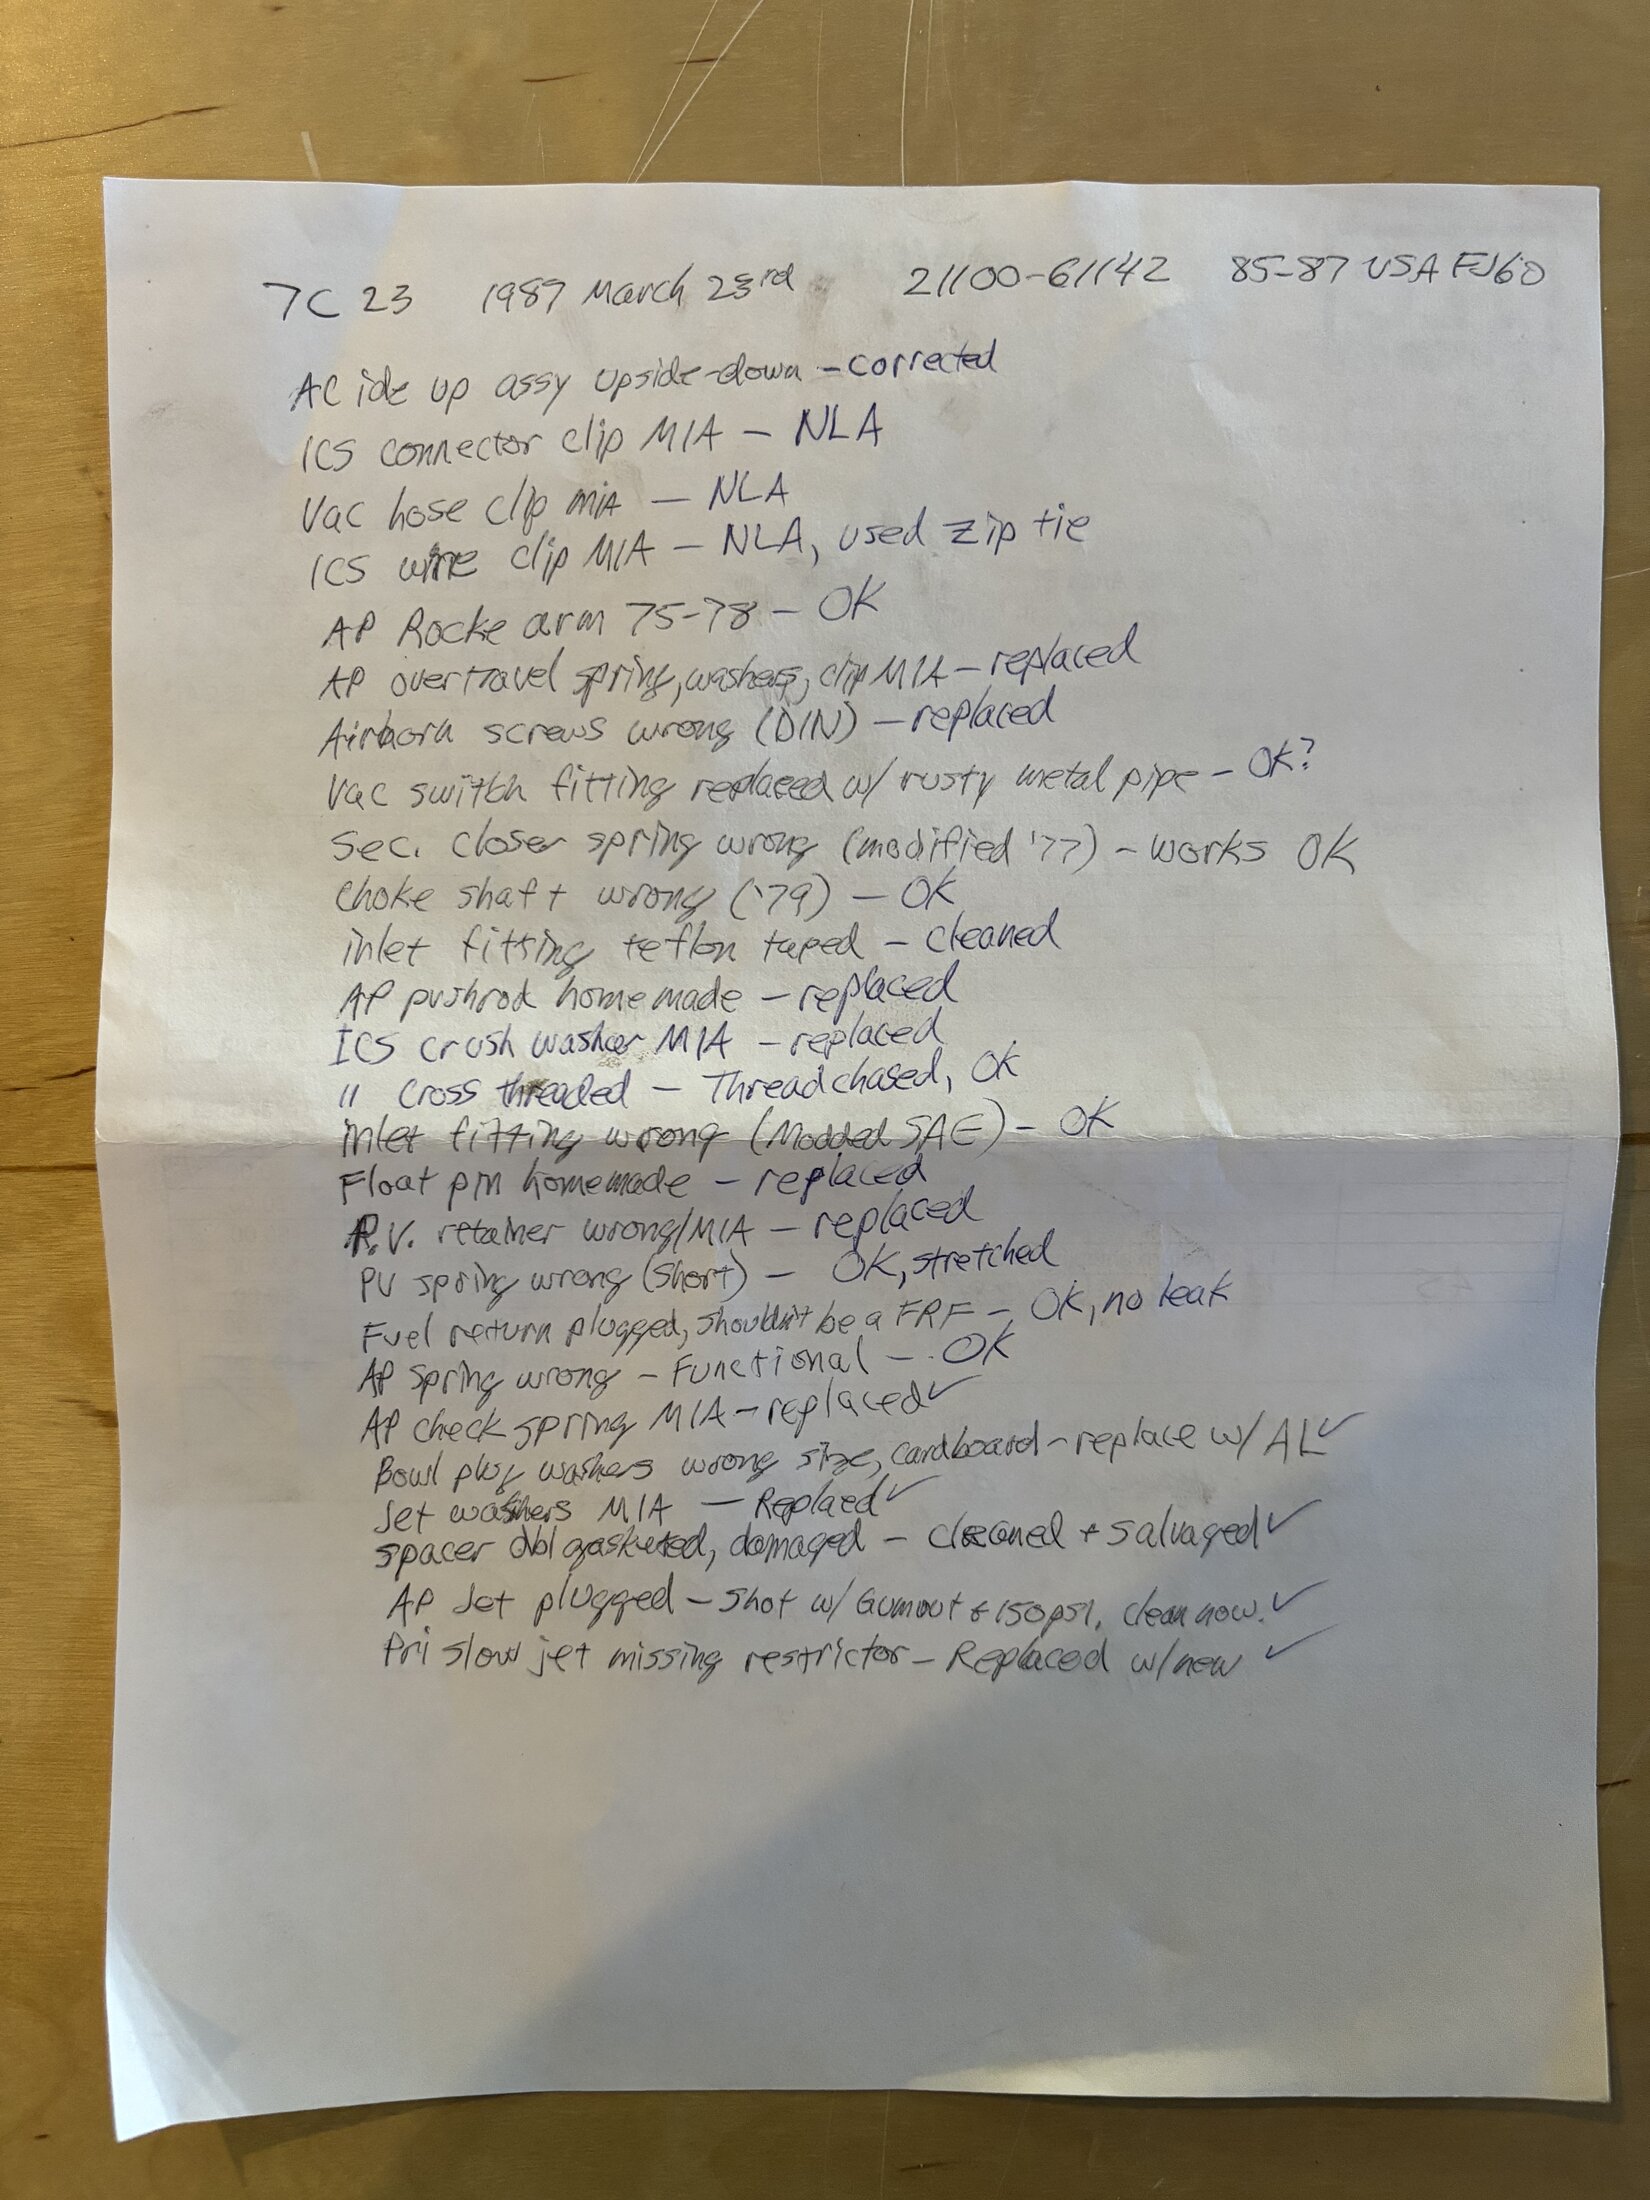 7C 23 1987 March 23rd 21100-61142 85-87 USA FJ60
AC idle up assy upside-down - corrected
ICS connector clip MIA - NLA
Vac hose clip MIA - NLA
ICS wire clip MIA - NLA, used zip tie
AP Rocke arm 75-78 - OK
AP overtravel spring, washers, clip MIA - replaced
Airhorn screws wrong (DIN) - replaced
Vac switch fitting replaced w/ rusty metal pipe - OK?
Sec. closer spring wrong (modified '77) - works OK
Choke shaft wrong ('79) - OK
inlet fitting teflon taped - cleaned
AP pushrod homemade - replaced
ICS crush washer MIA - replaced
" Cross threaded - Thread chased, OK
inlet fitting wrong (Modded SAE) - OK
Float pin homemade - replaced
P.V. retainer wrong/MIA - replaced
PV spring wrong (short) - OK, stretched
Fuel return plugged, shouldn't be a FRF - OK, no leak
AP spring wrong - Functional - OK
AP check spring MIA - replaced ✓
Bowl plug washers wrong size, cardboard - replace w/ AL ✓
Jet washers MIA - Replaed ✓
spacer dbl gasketed, damaged - cleaned + salvaged ✓
AP Jet plugged - Shot w/ Gumout & 150psi, clean now. ✓
Pri slow jet missing restrictor - Replaced w/ new ✓